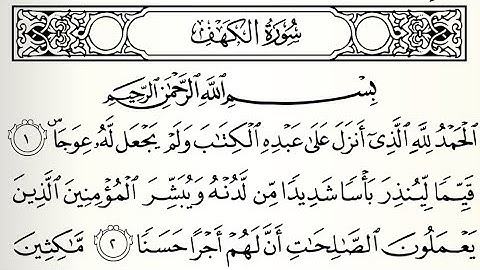 سُورَةُ الكَهْفِ
بِسْمِ اللَّهِ الرَّحْمَٰنِ الرَّحِيمِ
الْحَمْدُ لِلَّهِ الَّذِىٓ أَنزَلَ عَلَىٰ عَبْدِهِ الْكِتَٰبَ وَلَمْ يَجْعَل لَّهُۥ عِوَجَاۜ ١
قَيِّمًا لِّيُنذِرَ بَأْسًا شَدِيدًا مِّن لَّدُنْهُ وَيُبَشِّرَ الْمُؤْمِنِينَ الَّذِينَ
يَعْمَلُونَ الصَّٰلِحَٰتِ أَنَّ لَهُمْ أَجْرًا حَسَنًا ٢ مَّٰكِثِينَ